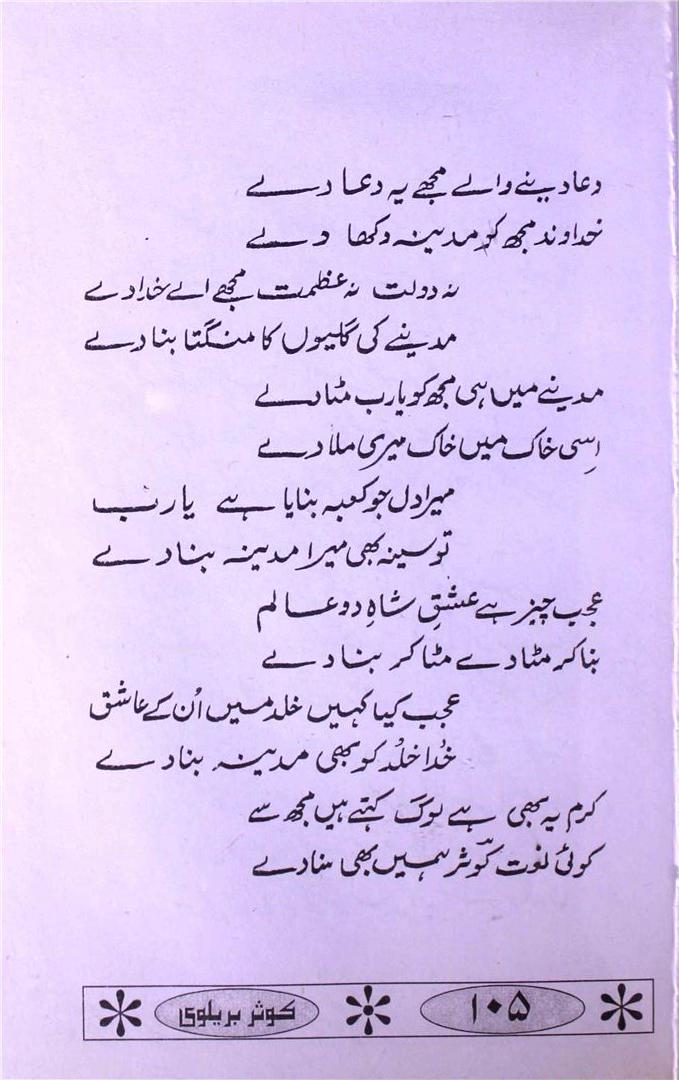 دعا دینے والے مجھے یہ دعا دے
خداوند مجھ کو مدینہ دکھا دے
نہ دولت نہ عظمت مجھے اے خدا دے
مدینے کی گلیوں کا منگتا بنا دے
مدینے میں ہی مجھ کو یارب مٹا دے
اِسی خاک میں خاک میری ملا دے
میرا دل جو کعبہ بنایا ہے یارب
تو سینہ بھی میرا مدینہ بنا دے
عجب چیز ہے عشقِ شاہِ دو عالم
بنا کر مٹا دے مٹا کر بنا دے
عجب کیا کہیں خلد میں اُن کے عاشق
خُدا خلُد کو بھی مدینہ بنا دے
کرم یہ بھی ہے لوگ کہتے ہیں مجھ سے
کوئی نعت کوثر ہمیں بھی سنا دے
۱۰۵
کوثر بریلوی